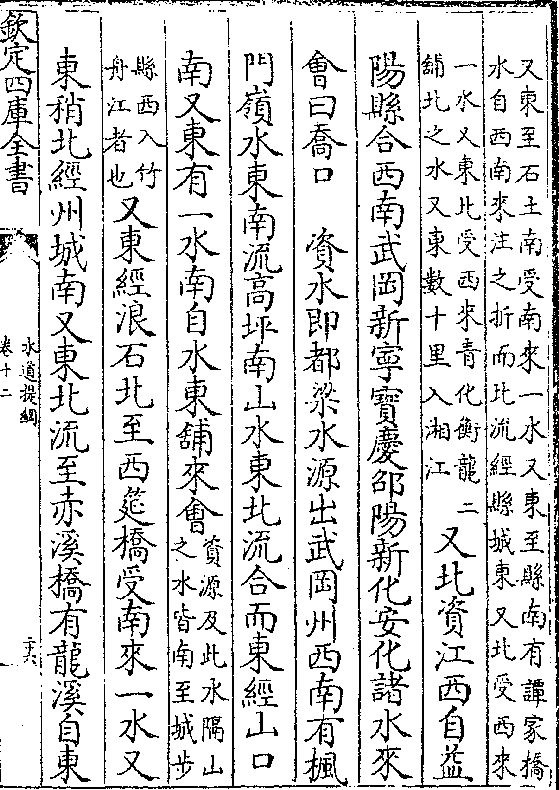 又東至石土南受南來一水又東至縣南有譚家橋
水自西南來注之折而北流經縣城東又北受西來
一水又東北受西來青化衡龍二
舖北之水又東數十里入湘江
又北資江西自益
陽縣合西南武岡新寧寶慶邵陽新化安化諸水來
會曰喬口　資水即都梁水源出武岡州西南有楓
門嶺水東南流高坪南山水東北流合而東經山口
南又東有一水南自水東舖來會
資源及此水隔山
之水皆南至城步
縣西入竹
舟江者也
又東經浪石北至西莚橋受南來一水又
東稍北經州城南又東北流至赤溪橋有龍溪自東
欽定四庫全書
水道提綱
卷十二
二十六